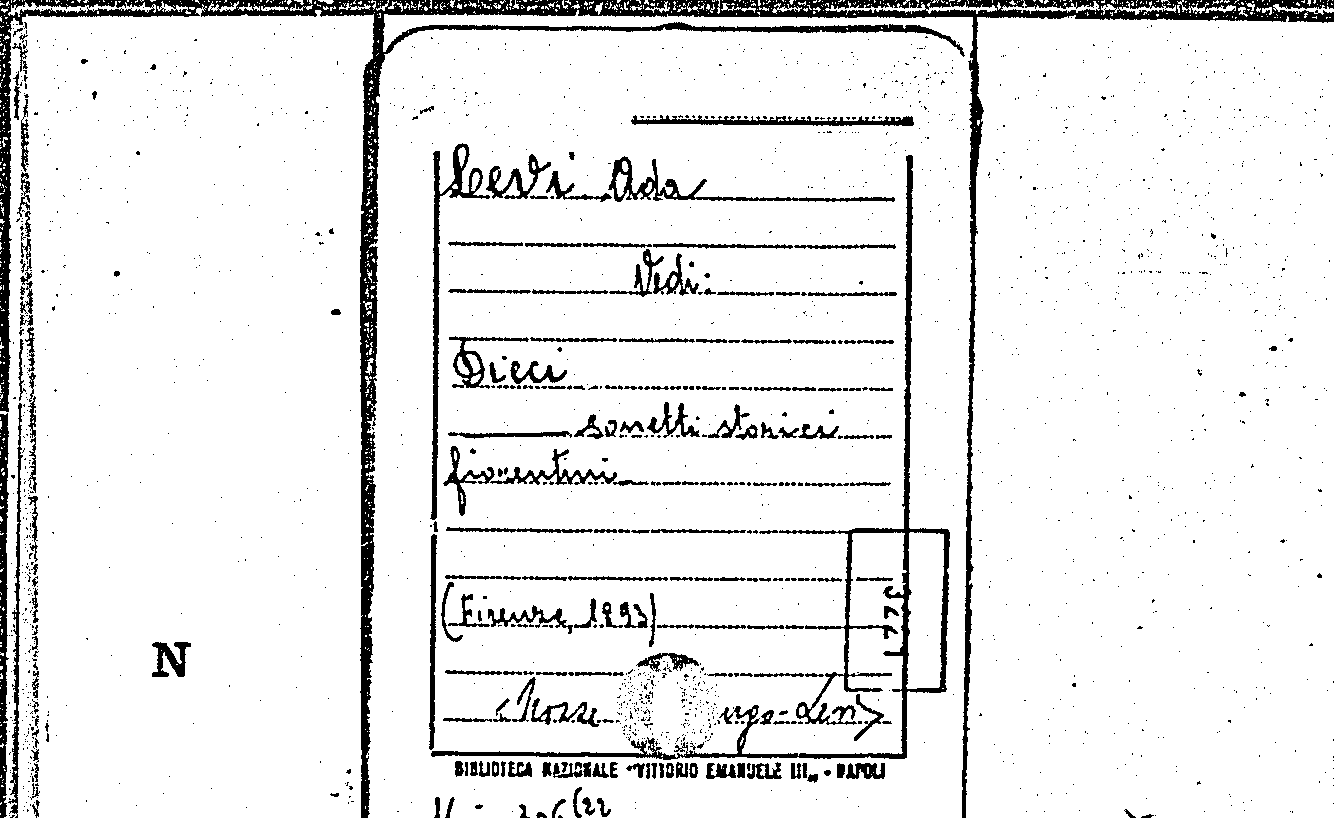 Levi Ada
Vedi:
Dieci
sonetti storici
fiorentini
(Firenze, 1893)
<Nozze
BIBLIOTECA NAZIONALE "VITTORIO EMANUELE III„ - NAPOLI
N